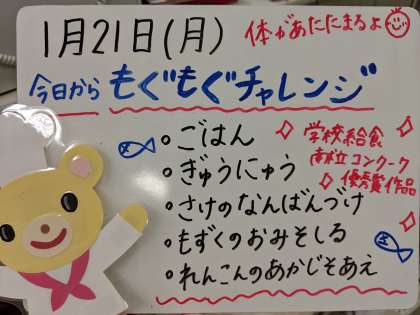 1月21日(月)
体があたたまるよ
今日から もぐもぐチャレンジ
ごはん
ぎゅうにゅう
さけのなんばんづけ
もずくのおみそしる
れんこんのあかじそあえ
学校給食
献立コンクール
優秀賞作品